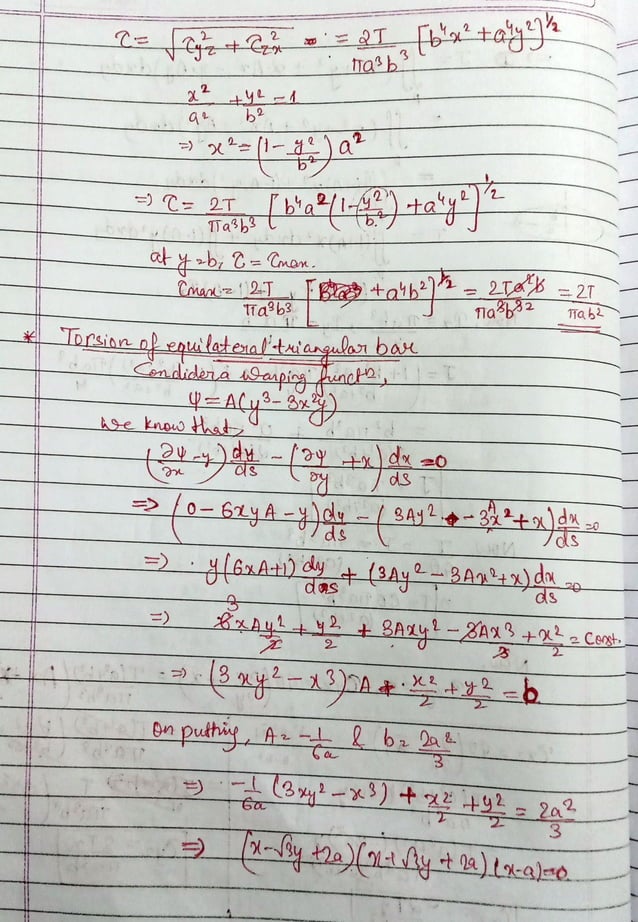 τ = √(τ²yz + τ²zx) = 2T/πa³b³ [b⁴x² + a⁴y²]^½
x²/a² + y²/b² = 1
⇒ x² = (1 - y²/b²) a²
⇒ τ = 2T/πa³b³ [b⁴a²(1 - y²/b²) + a⁴y²]^½
at y = b, τ = τmax.
τmax = 2T/πa³b³ [ + a⁴b²]^½ = 2Ta²b/πa³b³² = 2T/πab²
* Torsion of equilateral triangular bar
Condider a warping functn,
ψ = A(y³ - 3x²y)
We know that,
(∂ψ/∂x - y) dy/ds - (∂ψ/∂y + x) dx/ds = 0
⇒ (0 - 6xyA - y) dy/ds - (3Ay² - 3Ax² + x) dx/ds = 0
⇒ y(6xA+1) dy/ds + (3Ay² - 3Ax² + x) dx/ds = 0
⇒ 3 6xAy²/2 + y²/2 + 3Axy² - 3Ax³/3 + x²/2 = Const.
⇒ (3xy² - x³) A + x²/2 + y²/2 = b
On putting, A = -1/6a & b = 2a²/3
⇒ -1/6a (3xy² - x³) + x²/2 + y²/2 = 2a²/3
⇒ (x - √3y + 2a)(x + √3y + 2a)(x - a) = 0